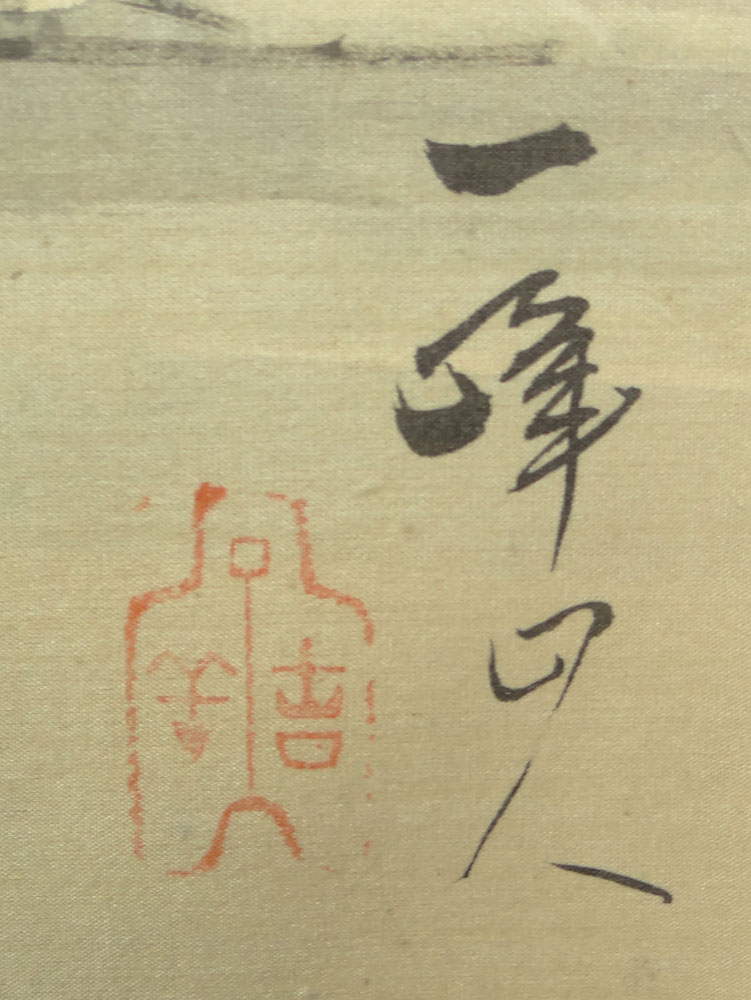 一峰山人